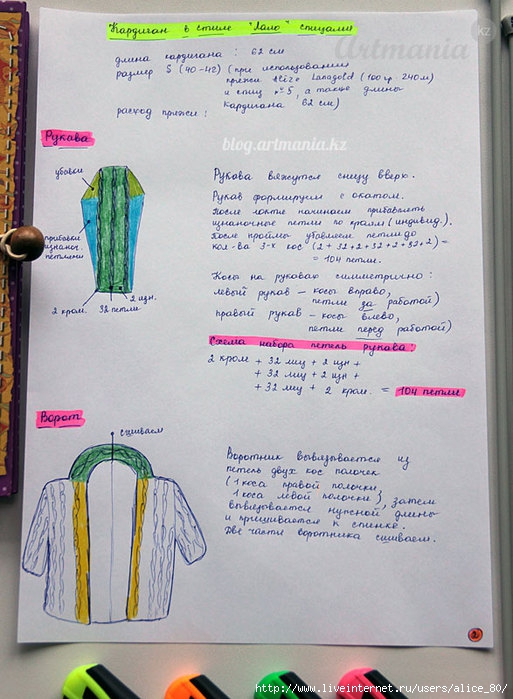 Кардиган в стиле "Лало" спицами
Artmania
kz
длина кардигана : 62 см
размер S (40-42) (при использовании
пряжи Alize Lanagold (100 гр. 240 м)
и спиц №5, а также длины
кардигана 62 см)
расход пряжи :
blog.artmania.kz
Рукава
убавки
прибавки
изнаночн.
петлями
2 изн.
2 кром. 32 петли
Рукава вяжутся снизу вверх.
Рукав формируем с окатом.
После локтя начинаем прибавлять
изнаночные петли по краям (индивид.).
После проймы убавляем петли до
кол-ва 3-х кос (2+32+2+32+2+32+2) =
= 104 петли.
Косы на рукавах симметрично :
левый рукав – косы вправо,
петли за работой)
правый рукав – косы влево,
петли перед работой)
Схема набора петель рукава:
2 кром + 32 лиц + 2 изн +
+ 32 лиц + 2 изн +
+ 32 лиц + 2 кром. = 104 петли
Ворот
сшиваем
Воротник вывязывается из
петель двух кос полочек
(1 коса правой полочки,
1 коса левой полочки), затем
вывязывается нужной длины
и пришивается к спинке.
Две части воротника сшиваем.
2
>http://www.liveinternet.ru/users/alice_80/